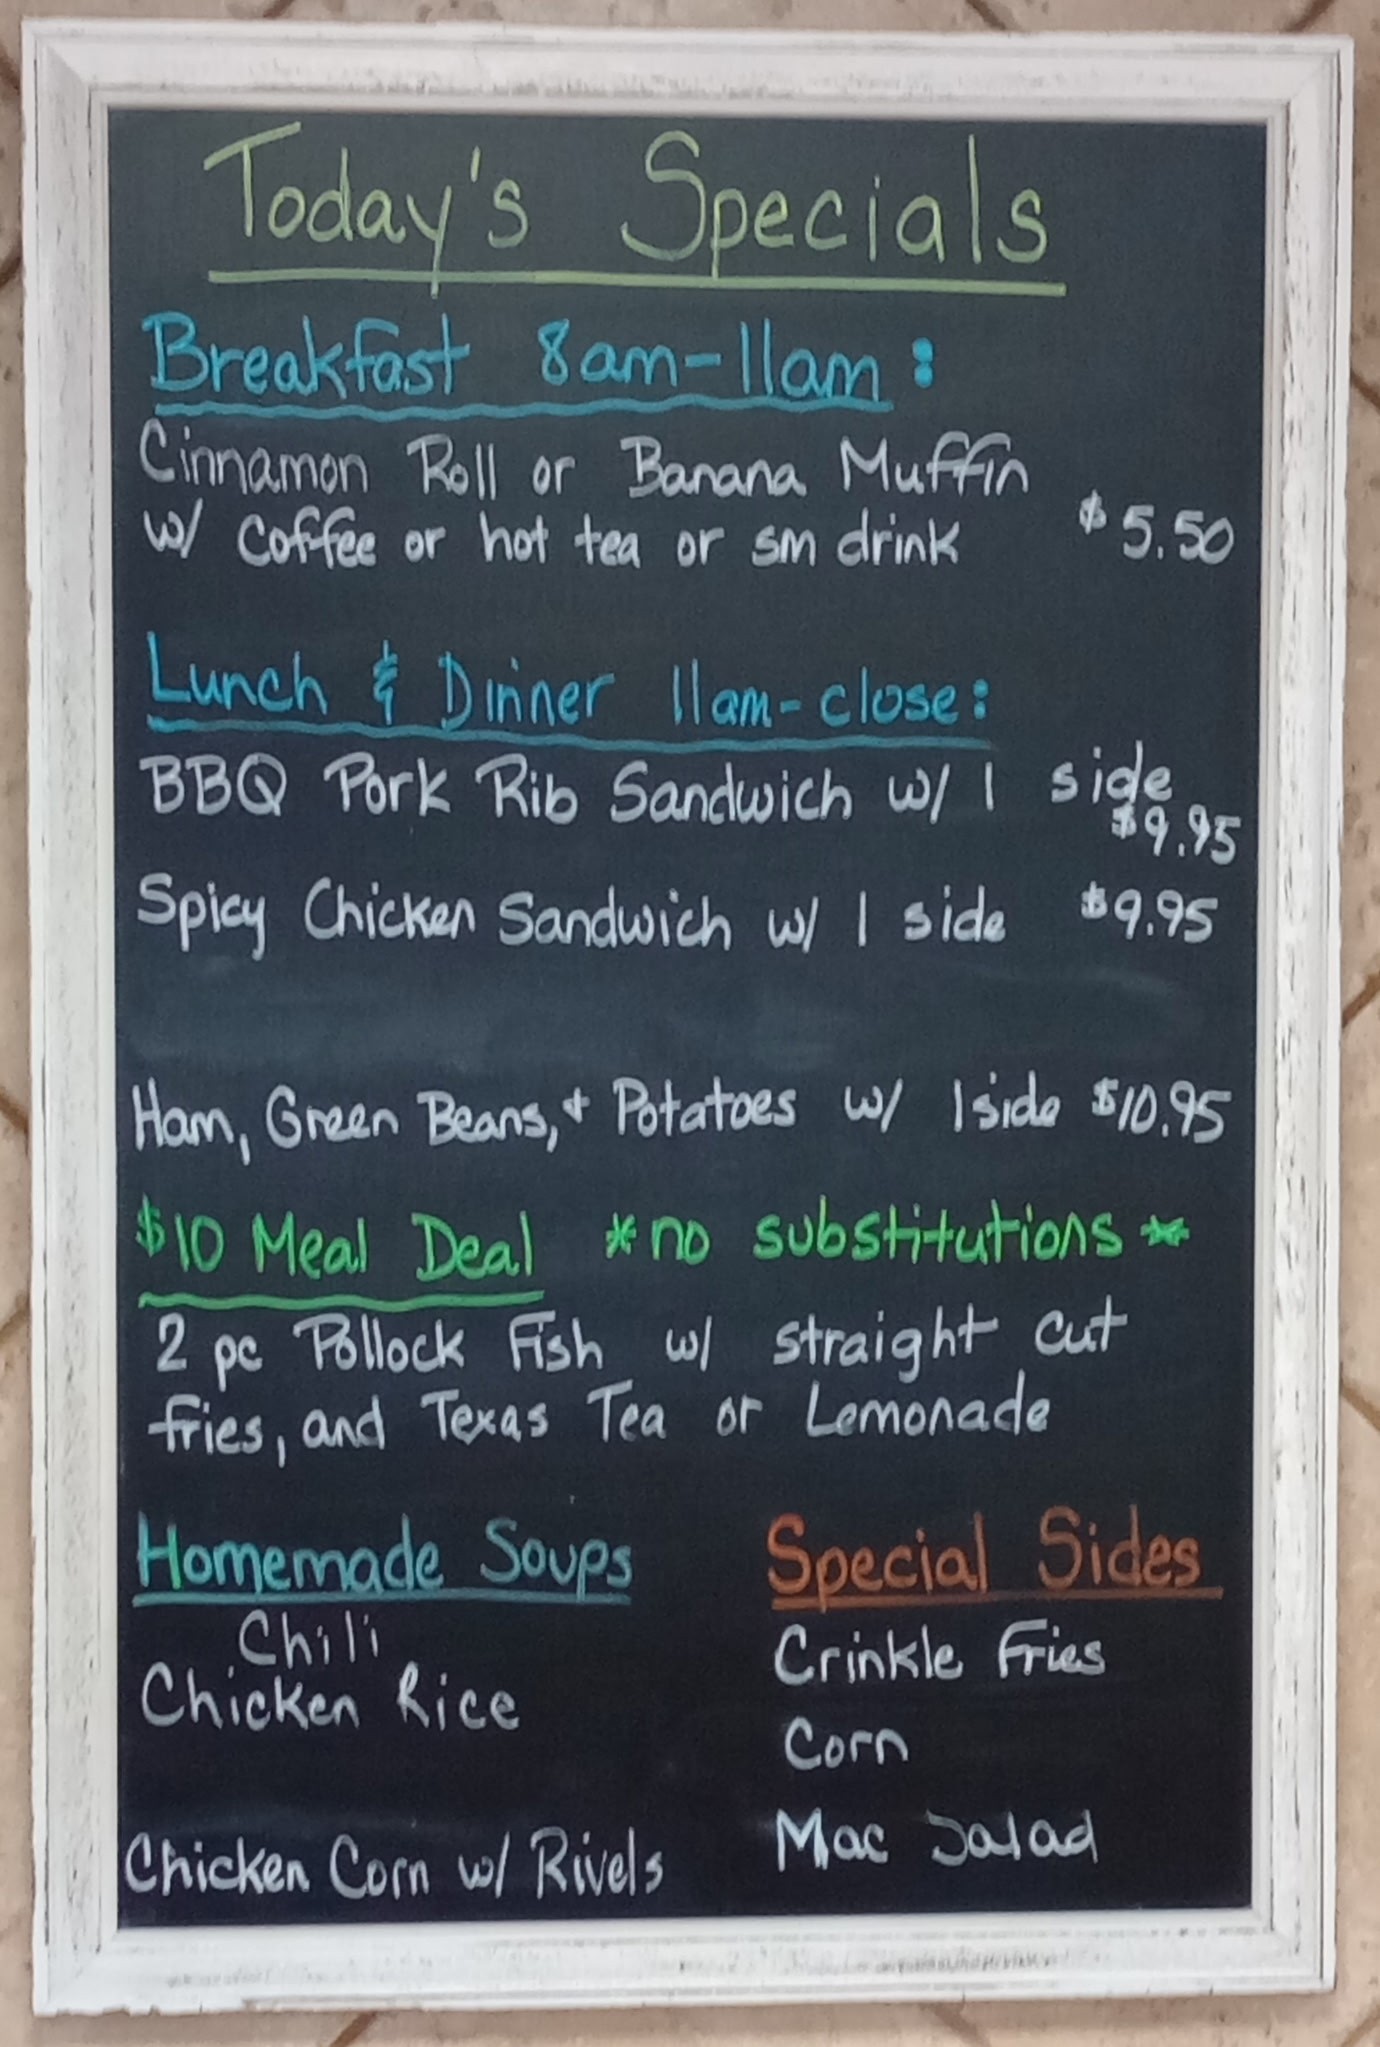 Today's Specials
Breakfast 8am-11am:
Cinnamon Roll or Banana Muffin
w/ Coffee or hot tea or sm drink $5.50
Lunch & Dinner 11am-close:
BBQ Pork Rib Sandwich w/ 1 side
$9.95
Spicy Chicken Sandwich w/ 1 side $9.95
Ham, Green Beans, + Potatoes w/ 1 side $10.95
$10 Meal Deal *no substitutions*
2 pc Pollock Fish w/ straight cut
fries, and Texas Tea or Lemonade
Homemade Soups
Chili
Chicken Rice
Chicken Corn w/ Rivels
Special Sides
Crinkle Fries
Corn
Mac Salad